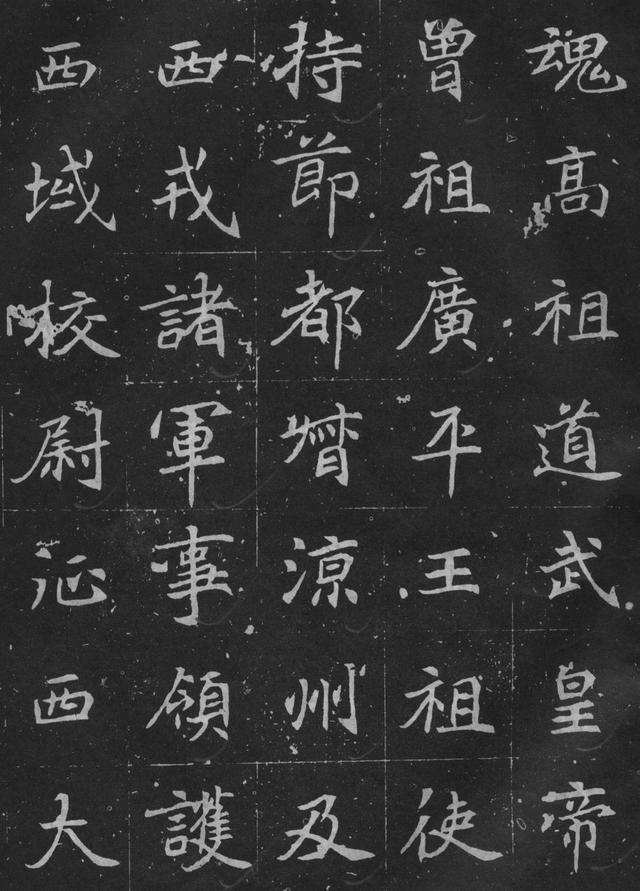 魂高祖道武皇帝
曾祖廣平王祖使
持節都督涼州及
西戎諸軍事領護
西域校尉征西大